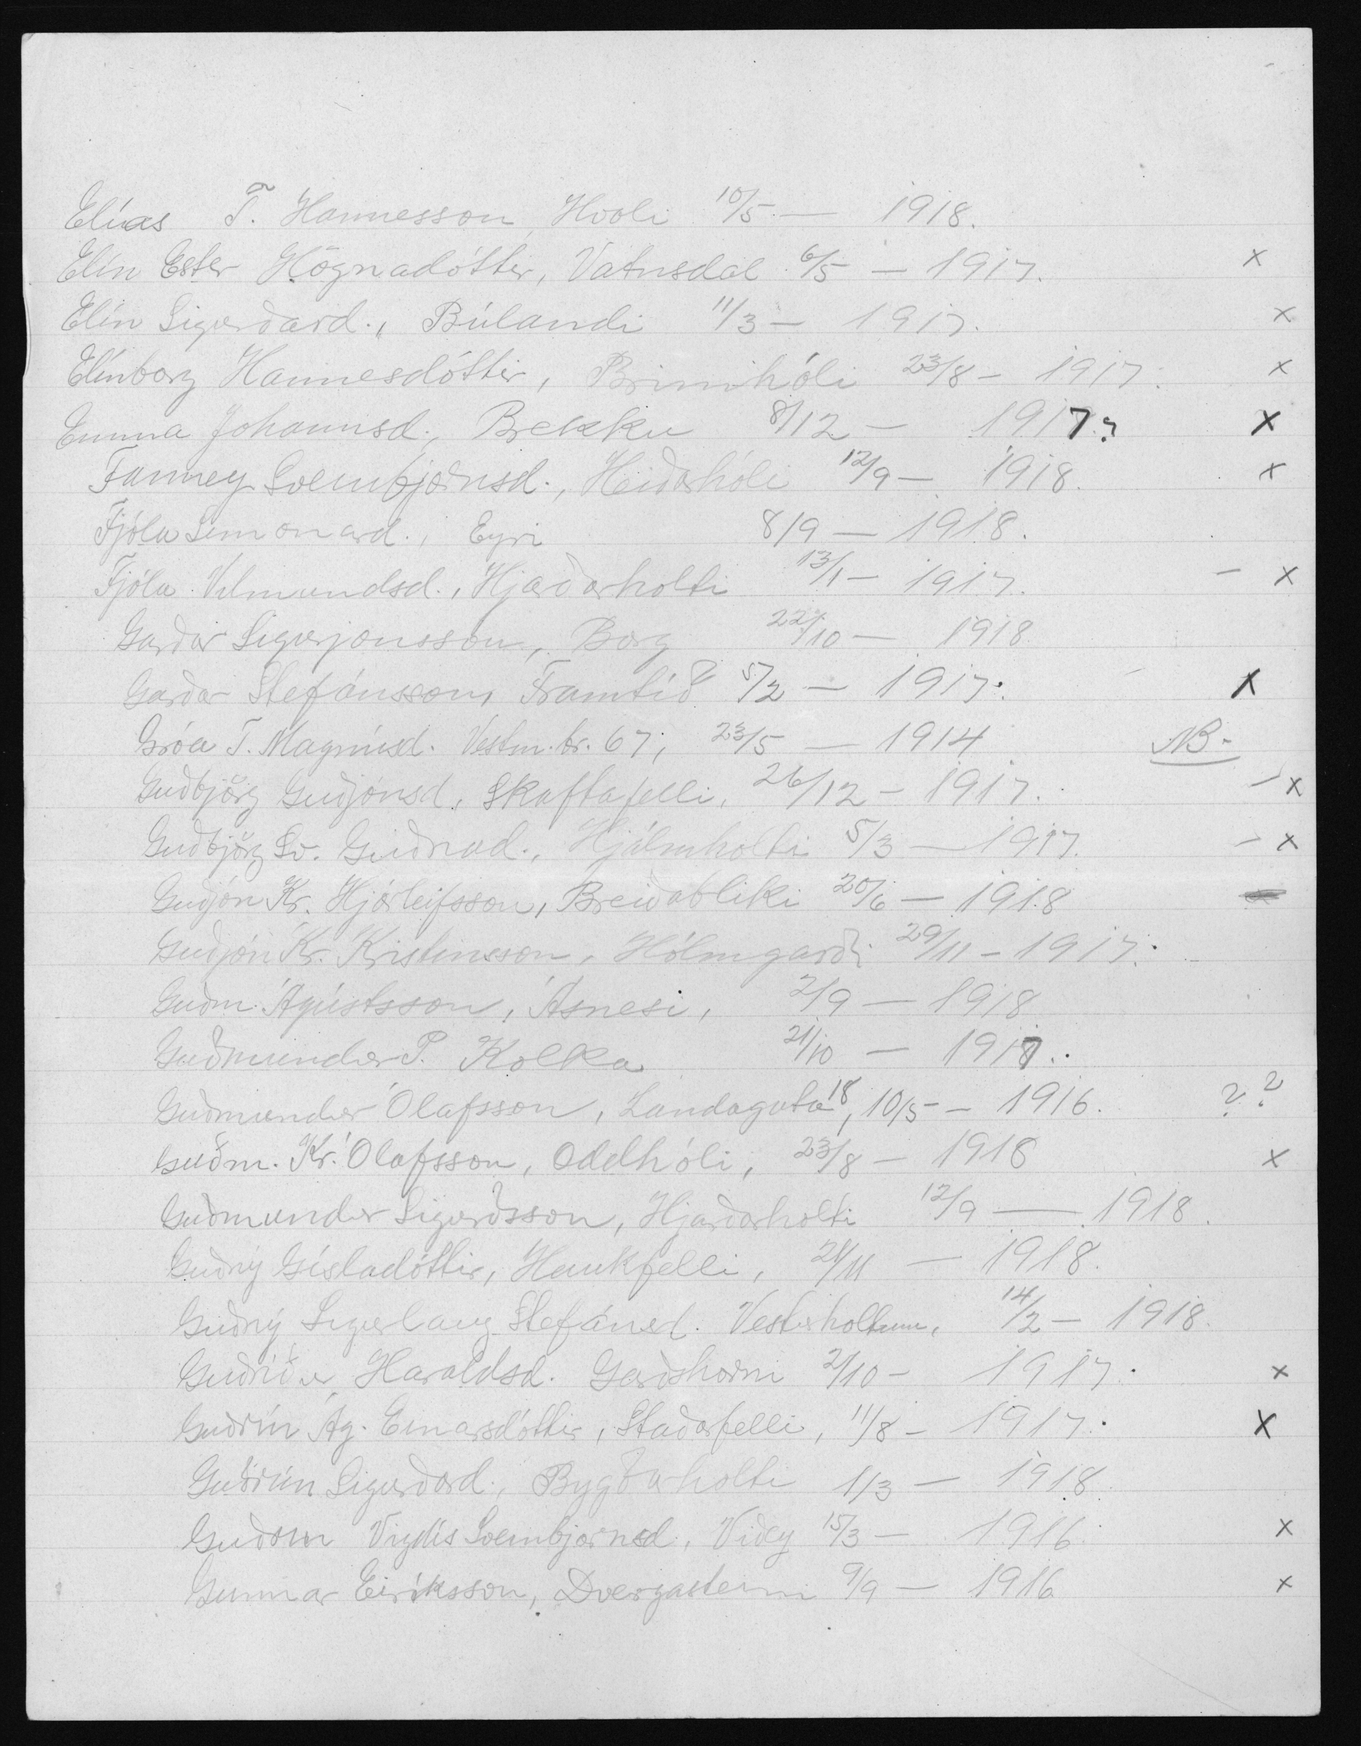 Elías T. Hannesson, Hvoli 10/5 — 1918.
Elín Ester Högnadóttir, Vatnsdal 6/5 — 1917. x
Elín Sigurðard., Búlandi 11/3 — 1917. x
Elínborg Hannesdóttir, Brimhóli 23/8 — 1917. x
Emma Jóhannsd., Brekku 8/12 — 1917. x
Fanney Sveinbjörnsd., Heiðarhóli 12/9 — 1918. x
Fjóla Símonard., Eyri 8/9 — 1918.
Fjóla Vilmundsd., Hjarðarholti 13/1 — 1917. — x
Garðar Sigurjónsson, Borg 22/10 — 1918
Garðar Stefánsson, Framtíð 5/2 — 1917. x
Gróa T. Magnúsd. Vestm.br. 67, 23/5 — 1914 NB-
Guðbjörg Guðjónsd., Skaftafelli, 26/12 — 1917. — x
Guðbjörg Sv. Guðnad., Hjálmholti 5/3 — 1917. — x
Guðjón Kr. Hjörleifsson, Breiðabliki 20/6 — 1918
Guðjón Kr. Kristinsson, Hólmgarði 29/11 — 1917.
Guðm. Ágústsson, Ásnesi, 2/9 — 1918
Guðmundur P. Kolka 21/10 — 1917.
Guðmundur Ólafsson, Landagata 18, 10/5 — 1916. ??
Guðm. Kr. Ólafsson, Oddhóli, 23/8 — 1918 x
Guðmundur Sigurðsson, Hjarðarholti 12/9 — 1918.
Guðný Gísladóttir, Haukfelli, 21/11 — 1918.
Guðný Sigurlaug Stefánsd. Vesturholtum, 14/2 — 1918.
Guðríður Haraldsd. Garðshorni 21/10 — 1917. x
Guðrún Ág. Einarsdóttir, Staðarfelli, 11/8 — 1917. x
Guðrún Sigurðard., Bygðarholti 1/3 — 1918
Guðrún Vigdís Sveinbjörnsd. Viðey 15/3 — 1916. x
Gunnar Eiríksson, Dvergasteini 9/9 — 1916 x